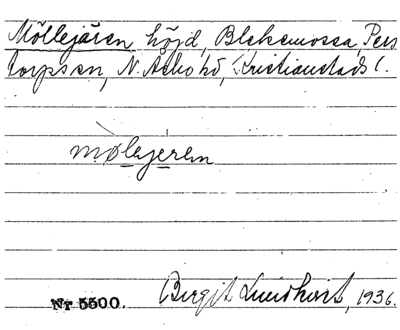 Möllejären, höjd, Blekemossa, Pers
torps sn, N. Åsbo hd, Kristianstads l.
mølejeren
Nr 5500. Birgit Lundkvist, 1936.